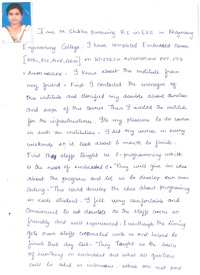 I am M. Shibha pursuing B.E in EEE in Dharmaraj
Engineering College. I have completed Embedded course
[8051, PIC, AVR, ARM] in WIZTECH AUTOMATION PVT LTD
- Anna nagar. I know about the institute from
my friend. First I contacted the manager of
this institute and clarified my doubts about duration
and scope of this course. Then I visited the institute
for the infrastructure. It's my pleasure to do course
in such an institution. I did my course in every
weekends so it took about 2 month to finish.
First the staffs taught us C-programming which
is the root of embedded C. They will give an idea
about the program and let us to develop our own
coding. This would develop the idea about programing
in each student. I felt very comfortable and
convenient to ask doubts as the staffs were so
friendly and well experienced. Even though the timing
gets over staffs cooperated with us and helped to
finish that day task. They taught us the basics
of everything in embedded and what all question
could be asked in interviews which are most